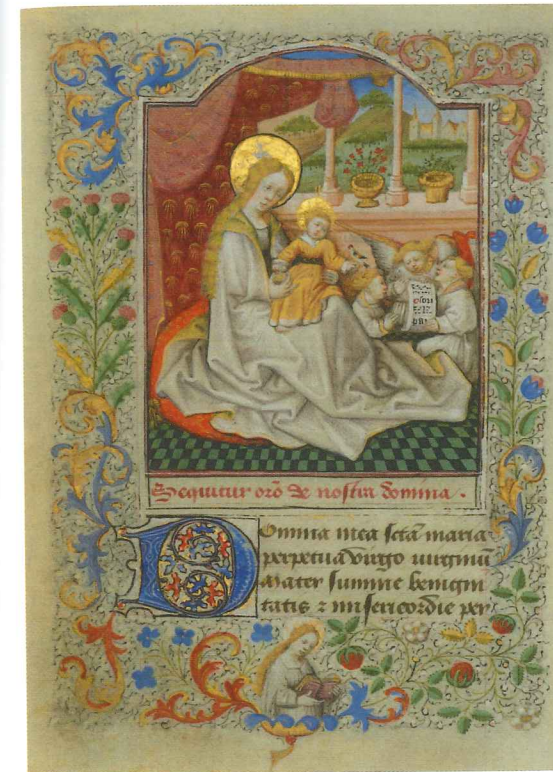 Sequitur orō de nostra domina.
Domina mea sctā maria
perpetua virgo virginū
Mater summe benigni
tatis ⁊ misericordie per